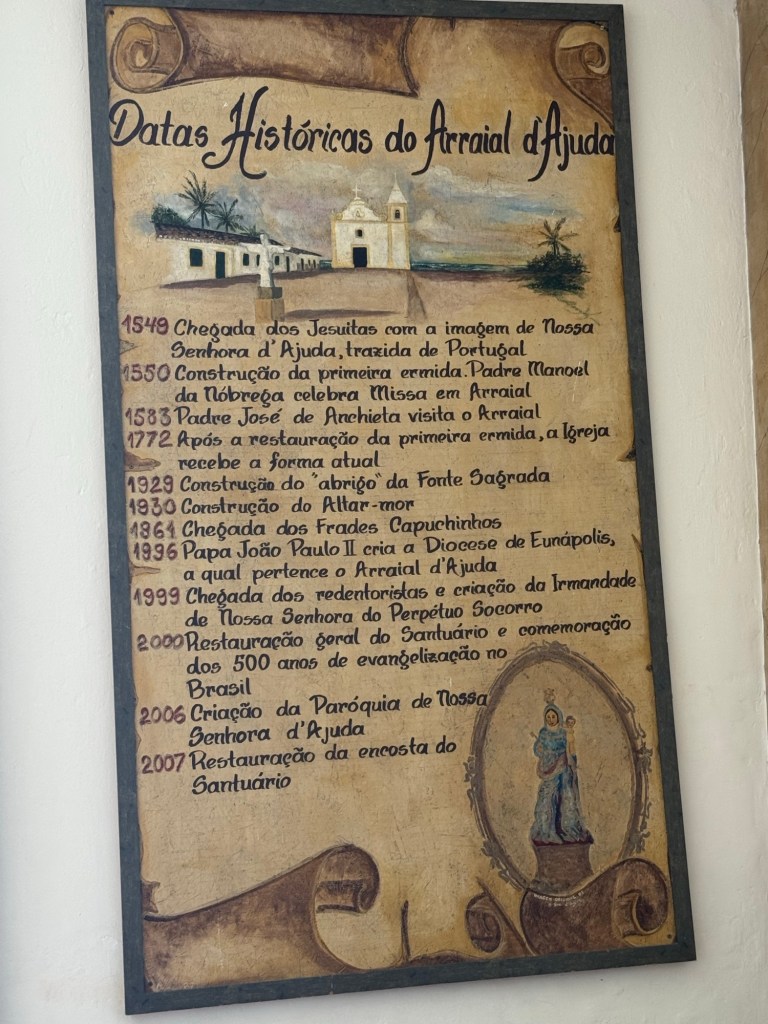 Datas Históricas do Arraial d'Ajuda
1549 Chegada dos Jesuitas com a imagem de Nossa
Senhora d'Ajuda, trazida de Portugal
1550 Construção da primeira ermida. Padre Manoel
da Nóbrega celebra Missa em Arraial
1583 Padre José de Anchieta visita o Arraial
1772 Após a restauração da primeira ermida, a Igreja
recebe a forma atual
1929 Construção do "abrigo" da Fonte Sagrada
1930 Construção do Altar-mor
1961 Chegada dos Frades Capuchinhos
1996 Papa João Paulo II cria a Diocese de Eunápolis,
a qual pertence o Arraial d'Ajuda
1999 Chegada dos redentoristas e criação da Irmandade
de Nossa Senhora do Perpétuo Socorro
2000 Restauração geral do Santuário e comemoração
dos 500 anos de evangelização no
Brasil
2006 Criação da Paróquia de Nossa
Senhora d'Ajuda
2007 Restauração da encosta do
Santuário